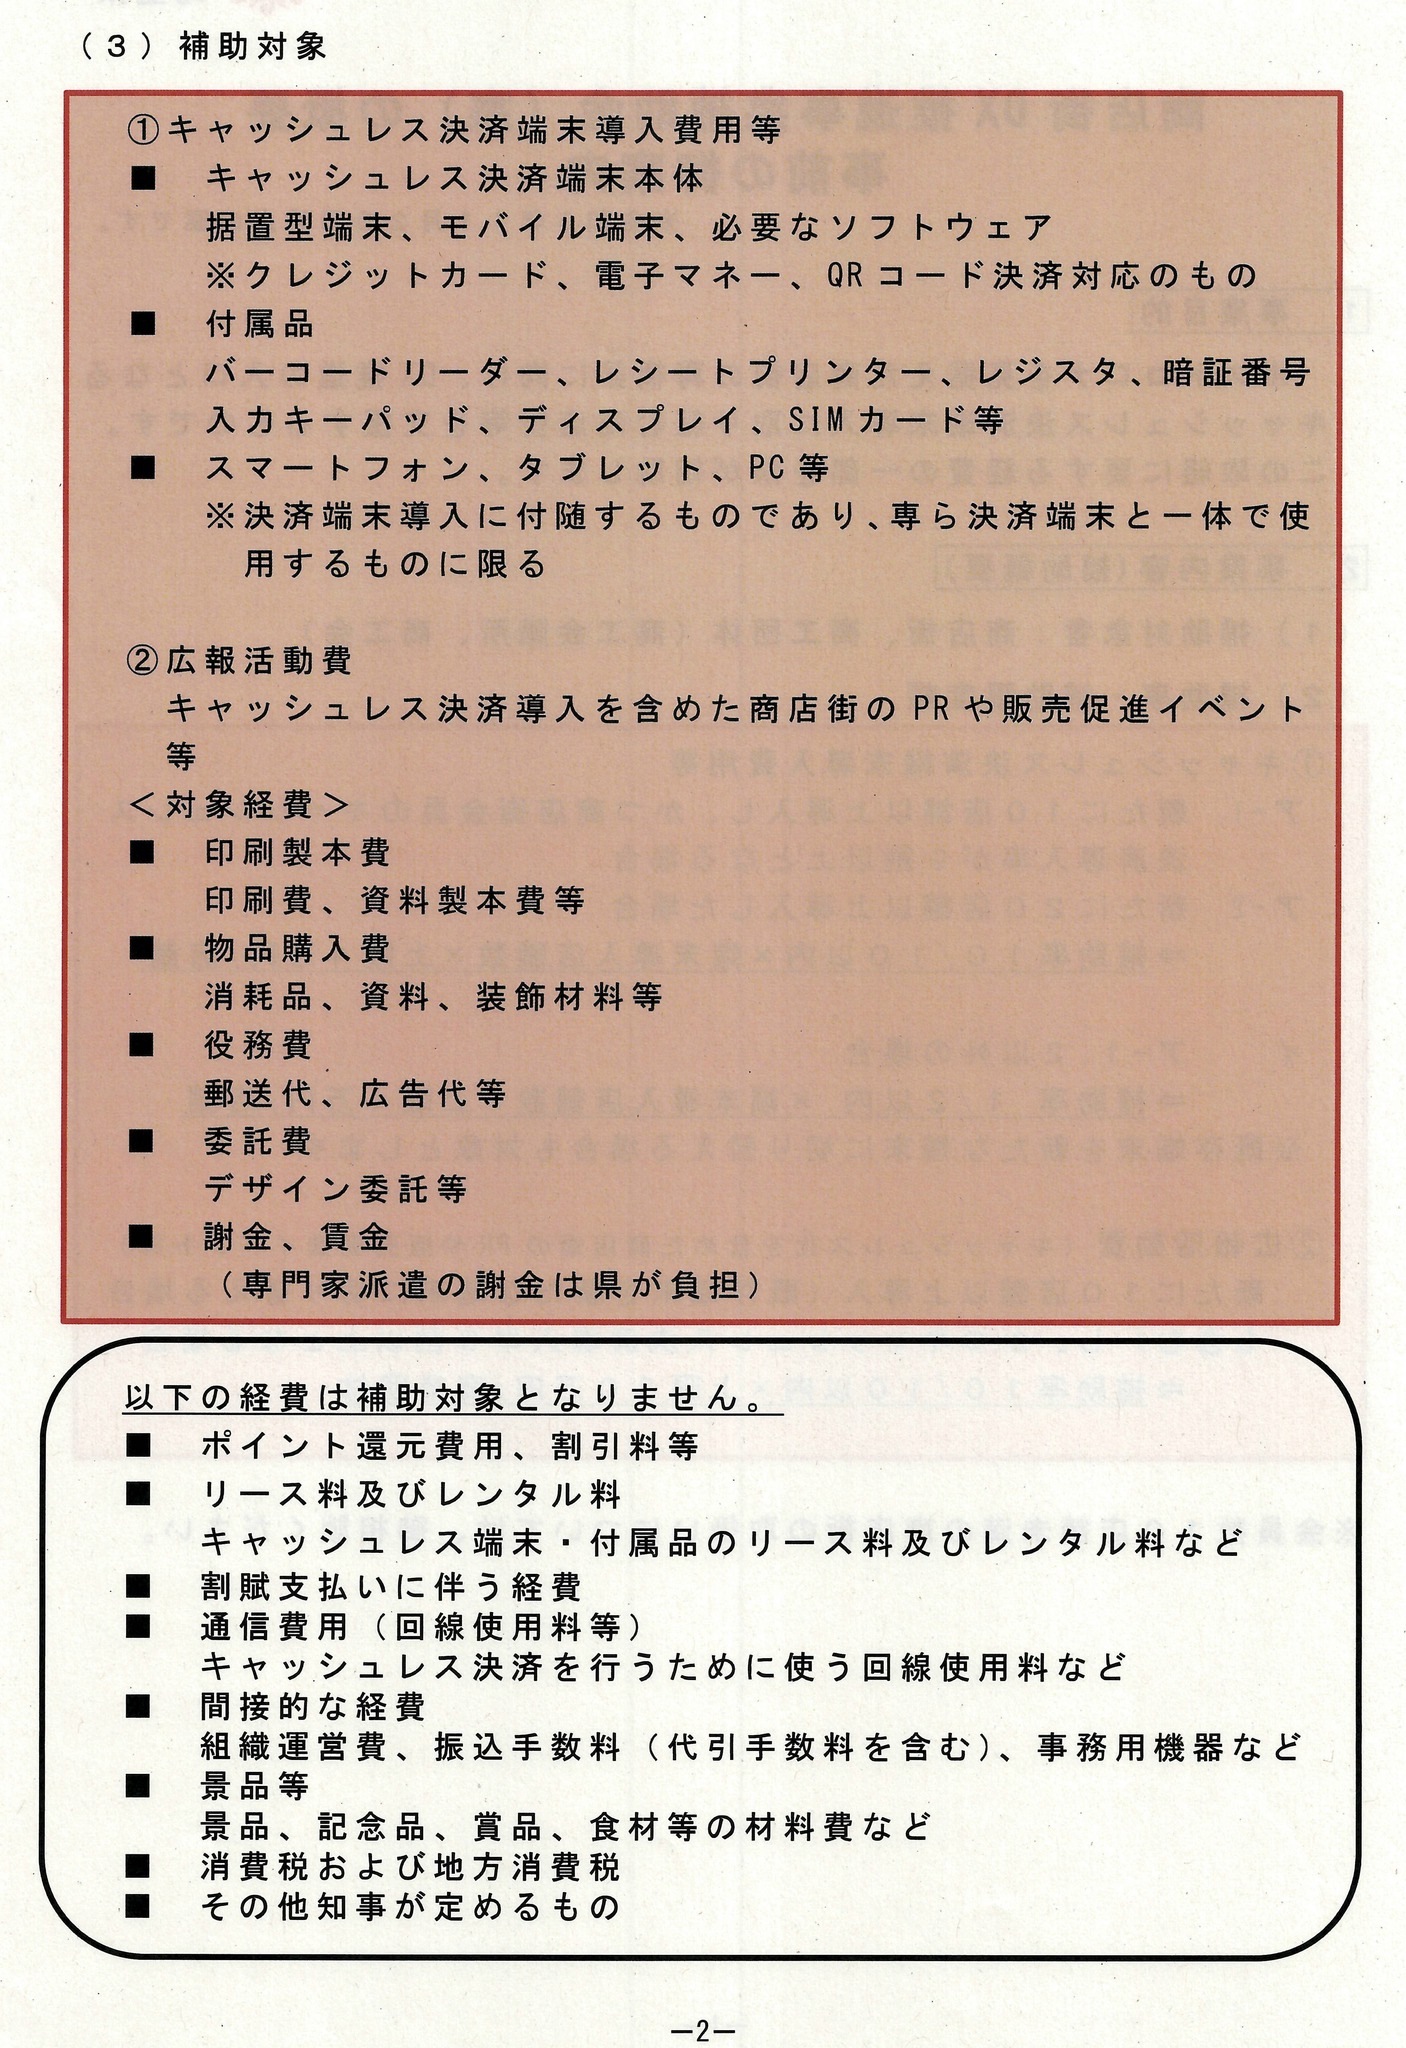 （３）補助対象
①キャッシュレス決済端末導入費用等
■　キャッシュレス決済端末本体
据置型端末、モバイル端末、必要なソフトウェア
※クレジットカード、電子マネー、QRコード決済対応のもの
■　付属品
バーコードリーダー、レシートプリンター、レジスタ、暗証番号
入力キーパッド、ディスプレイ、SIMカード等
■　スマートフォン、タブレット、PC等
※決済端末導入に付随するものであり、専ら決済端末と一体で使
用するものに限る
②広報活動費
キャッシュレス決済導入を含めた商店街のPRや販売促進イベント
等
＜対象経費＞
■　印刷製本費
印刷費、資料製本費等
■　物品購入費
消耗品、資料、装飾材料等
■　役務費
郵送代、広告代等
■　委託費
デザイン委託等
■　謝金、賃金
（専門家派遣の謝金は県が負担）
以下の経費は補助対象となりません。
■　ポイント還元費用、割引料等
■　リース料及びレンタル料
キャッシュレス端末・付属品のリース料及びレンタル料など
■　割賦支払いに伴う経費
■　通信費用（回線使用料等）
キャッシュレス決済を行うために使う回線使用料など
■　間接的な経費
組織運営費、振込手数料（代引手数料を含む）、事務用機器など
■　景品等
景品、記念品、賞品、食材等の材料費など
■　消費税および地方消費税
■　その他知事が定めるもの
－2－